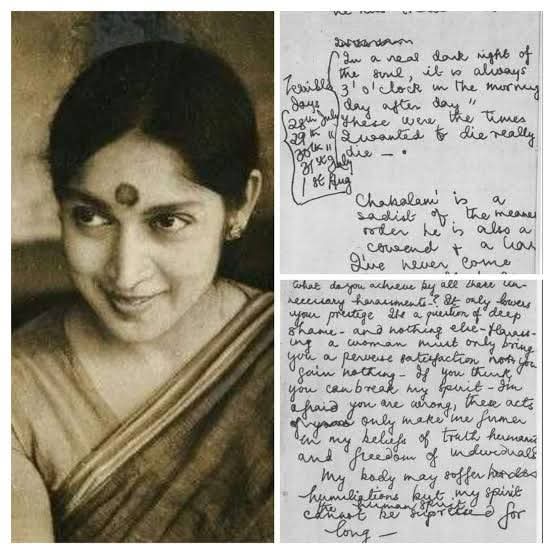 In a real dark night of
the soul, it is always
3 'o' clock in the morning
day after day "
These were the times
I wanted to die really
die — .
Terrible
days
28th July
29th "
30th "
31st July
1st Aug
Chabalani is a
sadist of the meanest
order he is also a
coward + a liar
I've never come
what do you achieve by all these un-
necessary harassments? It only lowers
your prestige Its a question of deep
shame – and nothing else – Harass-
ing a woman must only bring
you a perverse satisfaction you
gain nothing – If you think
you can break my spirit – Im
afraid you are wrong, these acts
only make me firmer
in my beliefs of truth
and freedom of individuals
My body may suffer
humiliations but my spirit
the human spirit
cannot be for
long —